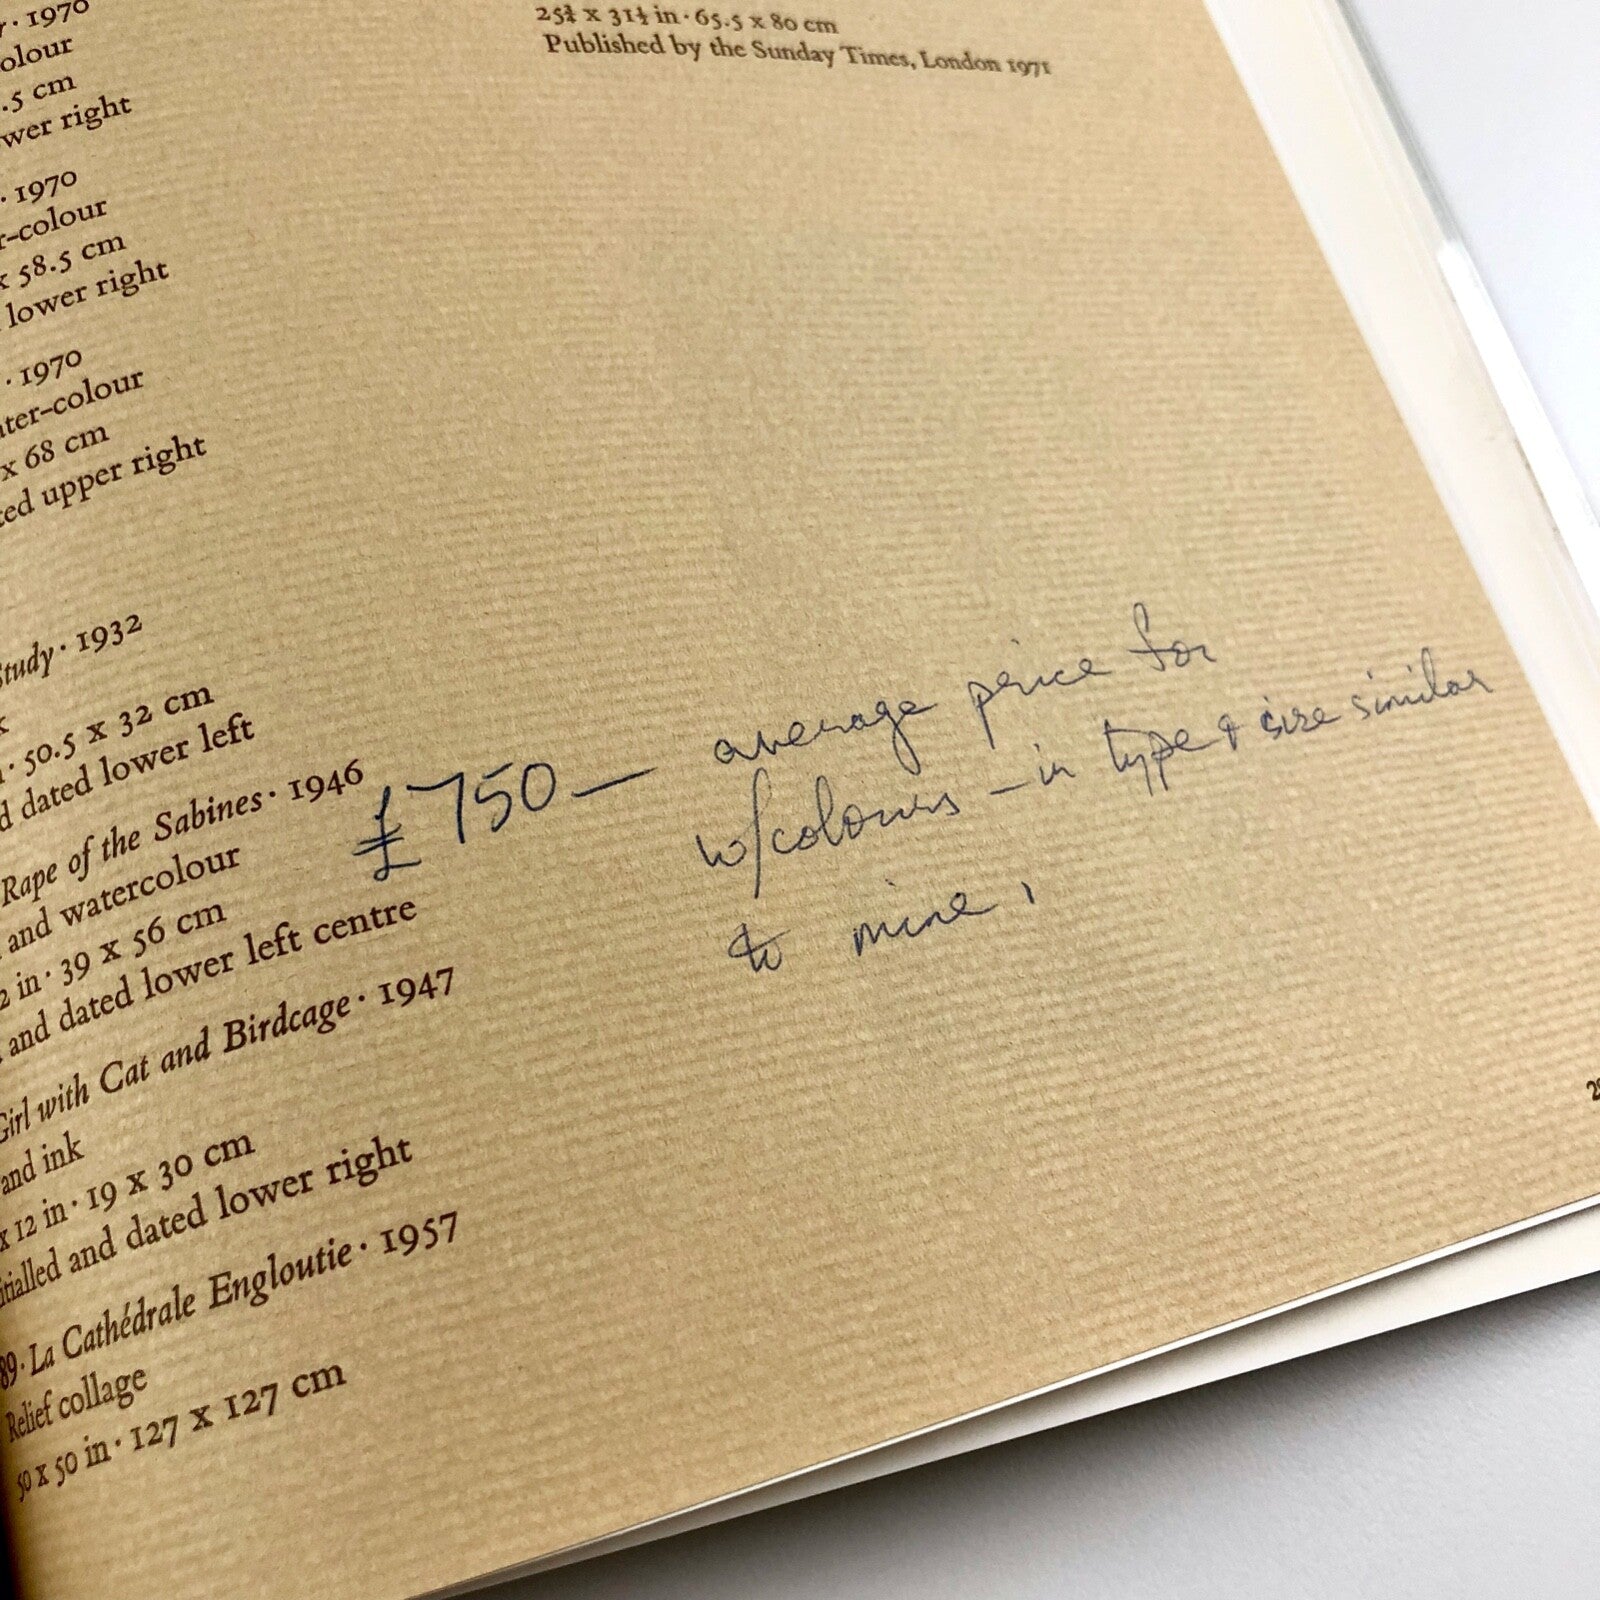 · 1970
olour
.5 cm
wer right
· 1970
r-colour
x 58.5 cm
lower right
· 1970
ter-colour
x 68 cm
ted upper right
Study · 1932
k
· 50.5 x 32 cm
d dated lower left
Rape of the Sabines · 1946
and watercolour
2 in · 39 x 56 cm
and dated lower left centre
Girl with Cat and Birdcage · 1947
and ink
x 12 in · 19 x 30 cm
itialled and dated lower right
89 · La Cathédrale Engloutie · 1957
Relief collage
50 x 50 in · 127 x 127 cm
25¾ x 31½ in · 65.5 x 80 cm
Published by the Sunday Times, London 1971
£750 — average price for
w/colours – in type & size similar
to mine.